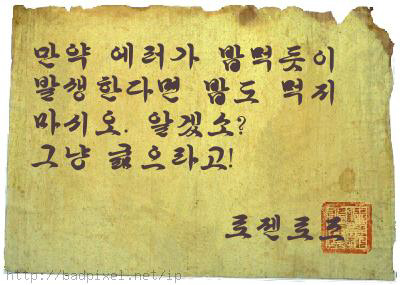 만약 에러가 밥먹듯이
발생한다면 밥도 먹지
마시오. 알겠소?
그냥 굶으라고!
토젠로프
http://badpixel.net/ip